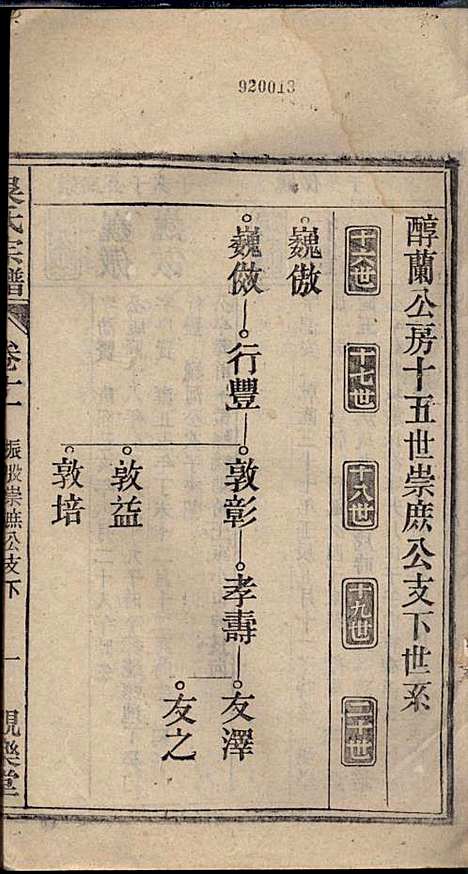 920013
醇蘭公房十五世崇庶公支下世系
十六世
十七世
十八世
十九世
二十世
巍傲
巍倣
行豐
敦彰
孝壽
友澤
友之
敦益
敦培
吳氏宗譜
卷十一
振股崇庶公支下
一